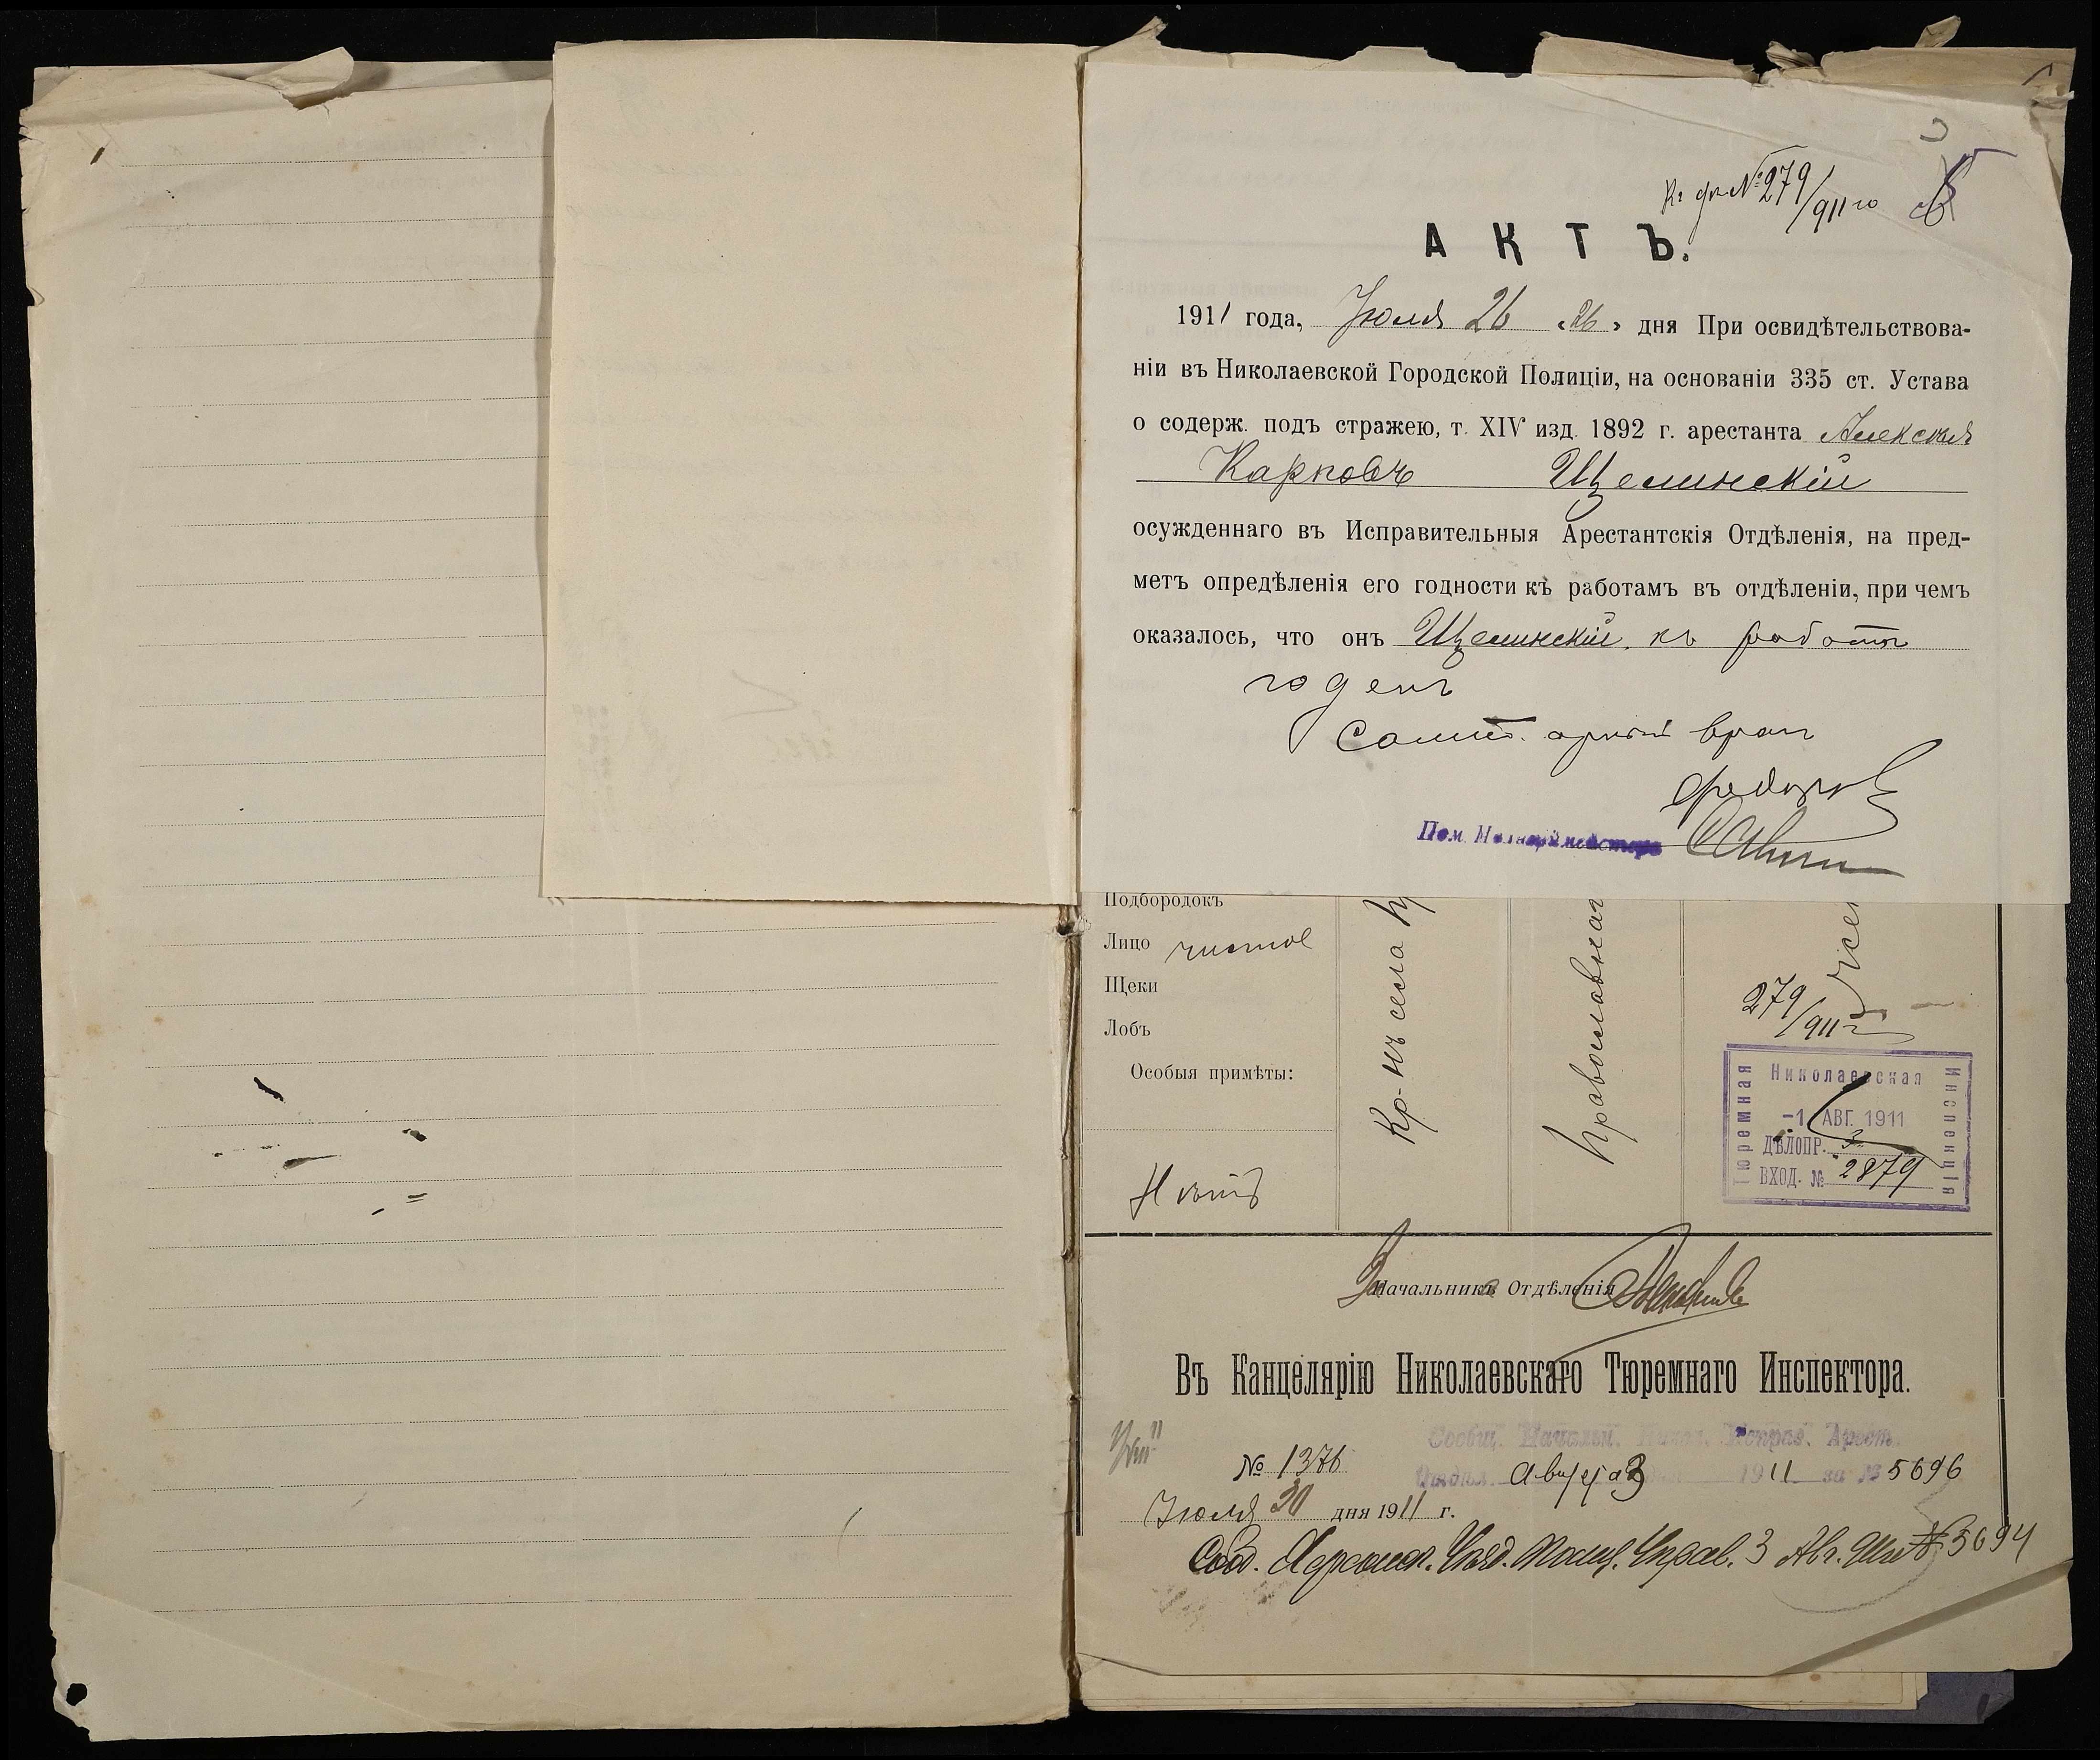 Къ д. № 279/911 го
АКТЪ.
1911 года, Июля 26 «26» дня При освидѣтельствова-
нiи въ Николаевской Городской Полицiи, на основанiи 335 ст. Устава
о содерж. подъ стражею, т. XIV изд. 1892 г. арестанта Алексѣя
Карповъ Щелинскiй
осужденнаго въ Исправительныя Арестантскiя Отдѣленiя, на пред-
метъ опредѣленiя его годности къ работамъ въ отдѣленiи, при чемъ
оказалось, что онъ Щелинскiй къ работѣ
годенъ
врач
Федоров
Пом. Полицiймейстера
Подбородокъ
Лицо чистое
Щеки
Лобъ
Особыя примѣты:
Нѣтъ
Кр-нъ села
Православнаг
279/911 г
Николаевская
Тюремная
Инспекцiя
-1 АВГ. 1911
ДѢЛОПР. 3
ВХОД. № 2879
За Начальника Отдѣленiя
Въ Канцелярiю Николаевскаго Тюремнаго Инспектора.
Сообщ. Начальн. Никол. Исправ. Арест.
№ 1376
Отдѣл. Августа 3 1911 за № 5696
Июля 30 дня 1911 г.
Херсон. Уѣзд. Полиц. Управ. 3 Авг. № 5694